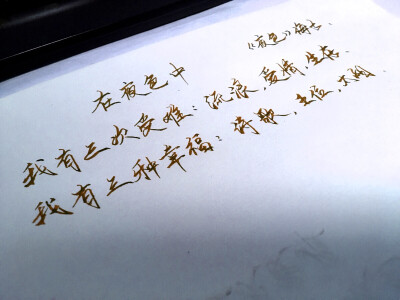 《夜色》海子.
在夜色中
我有三次受难：流浪、爱情、生存.
我有三种幸福：诗歌、王位、太阳.